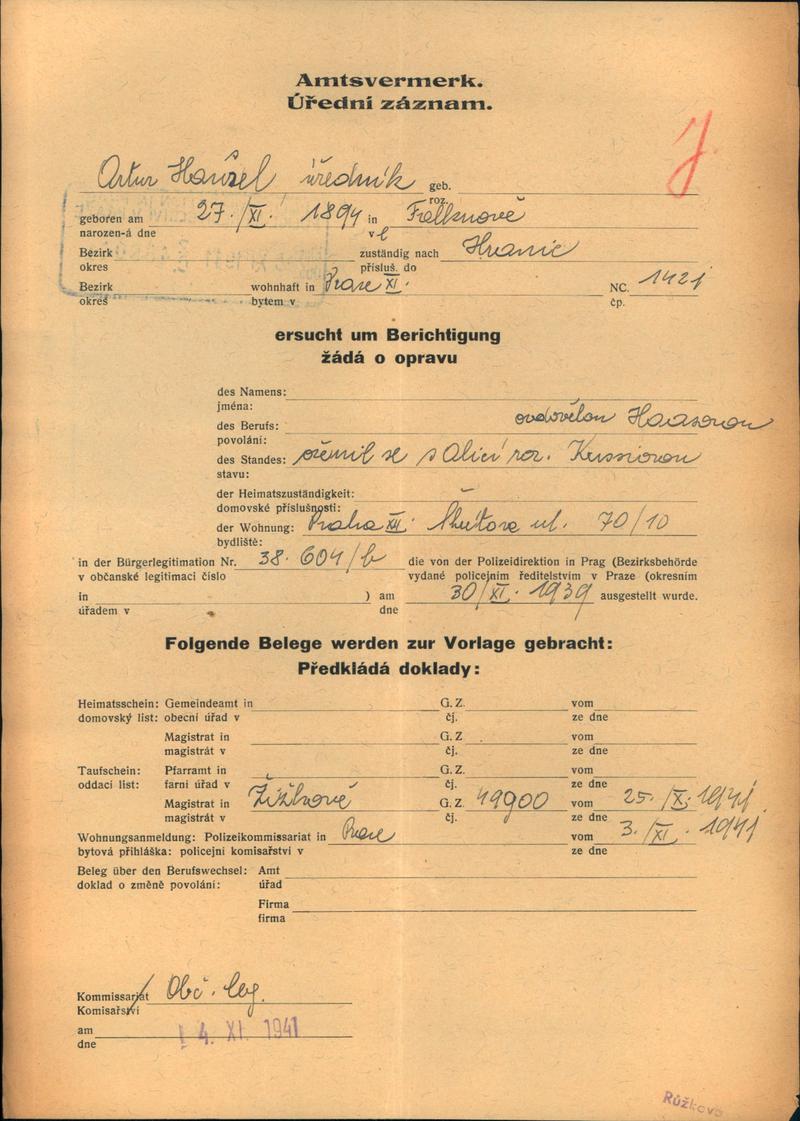 Amtsvermerk.
Úřední záznam.
J
Artur úředník geb.
roz.
geboren am 27./XI. 1894 in
narozen-á dne v
Bezirk zuständig nach Hranic
okres přísluš. do
Bezirk wohnhaft in Praze XI. NC. 1421
okres bytem v čp.
ersucht um Berichtigung
žádá o opravu
des Namens:
jména:
des Berufs: ovdovělou Haasovou
povolání:
des Standes: oženil se s Alicí roz.
stavu:
der Heimatszuständigkeit:
domovské příslušnosti:
der Wohnung: Praha XII. ul. 70/10
bydliště:
in der Bürgerlegitimation Nr. 38.604/b die von der Polizeidirektion in Prag (Bezirksbehörde
v občanské legitimaci číslo vydané policejním ředitelstvím v Praze (okresním
in ) am 30/XI. 1939 ausgestellt wurde.
úřadem v dne
Folgende Belege werden zur Vorlage gebracht:
Předkládá doklady:
Heimatsschein: Gemeindeamt in G. Z. vom
domovský list: obecní úřad v čj. ze dne
Magistrat in G. Z. vom
magistrát v čj. ze dne
Taufschein: Pfarramt in G. Z. vom
oddací list: farní úřad v čj. ze dne
Magistrat in Žižkově G. Z. 49900 vom 25./X. 1941
magistrát v čj. ze dne
Wohnungsanmeldung: Polizeikommissariat in Praze vom 3./XI. 1941
bytová přihláška: policejní komisařství v ze dne
Beleg über den Berufswechsel: Amt
doklad o změně povolání: úřad
Firma
firma
Kommissariat Obč. leg.
Komisařství
am 4. XI. 1941
dne
Růžkova